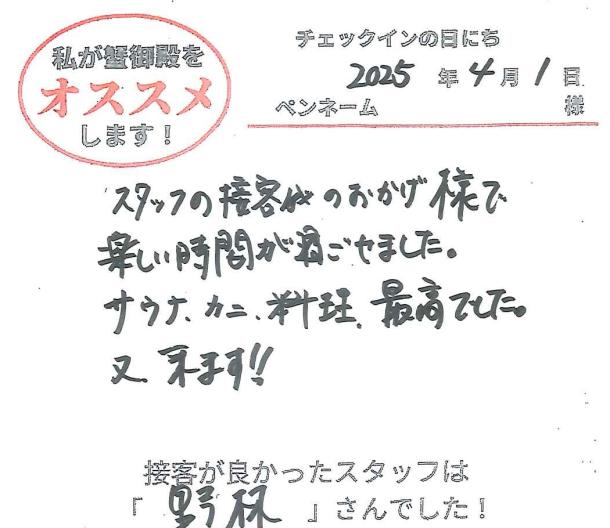 私が蟹御殿を
オススメ
します！
チェックインの日にち
2025 年 4 月 1 日
ペンネーム 様
スタッフの接客のおかげ様で
楽しい時間が過ごせました。
サウナ、カニ、料理、最高でした。
又、来ます!!
接客が良かったスタッフは
「 野林 」さんでした！